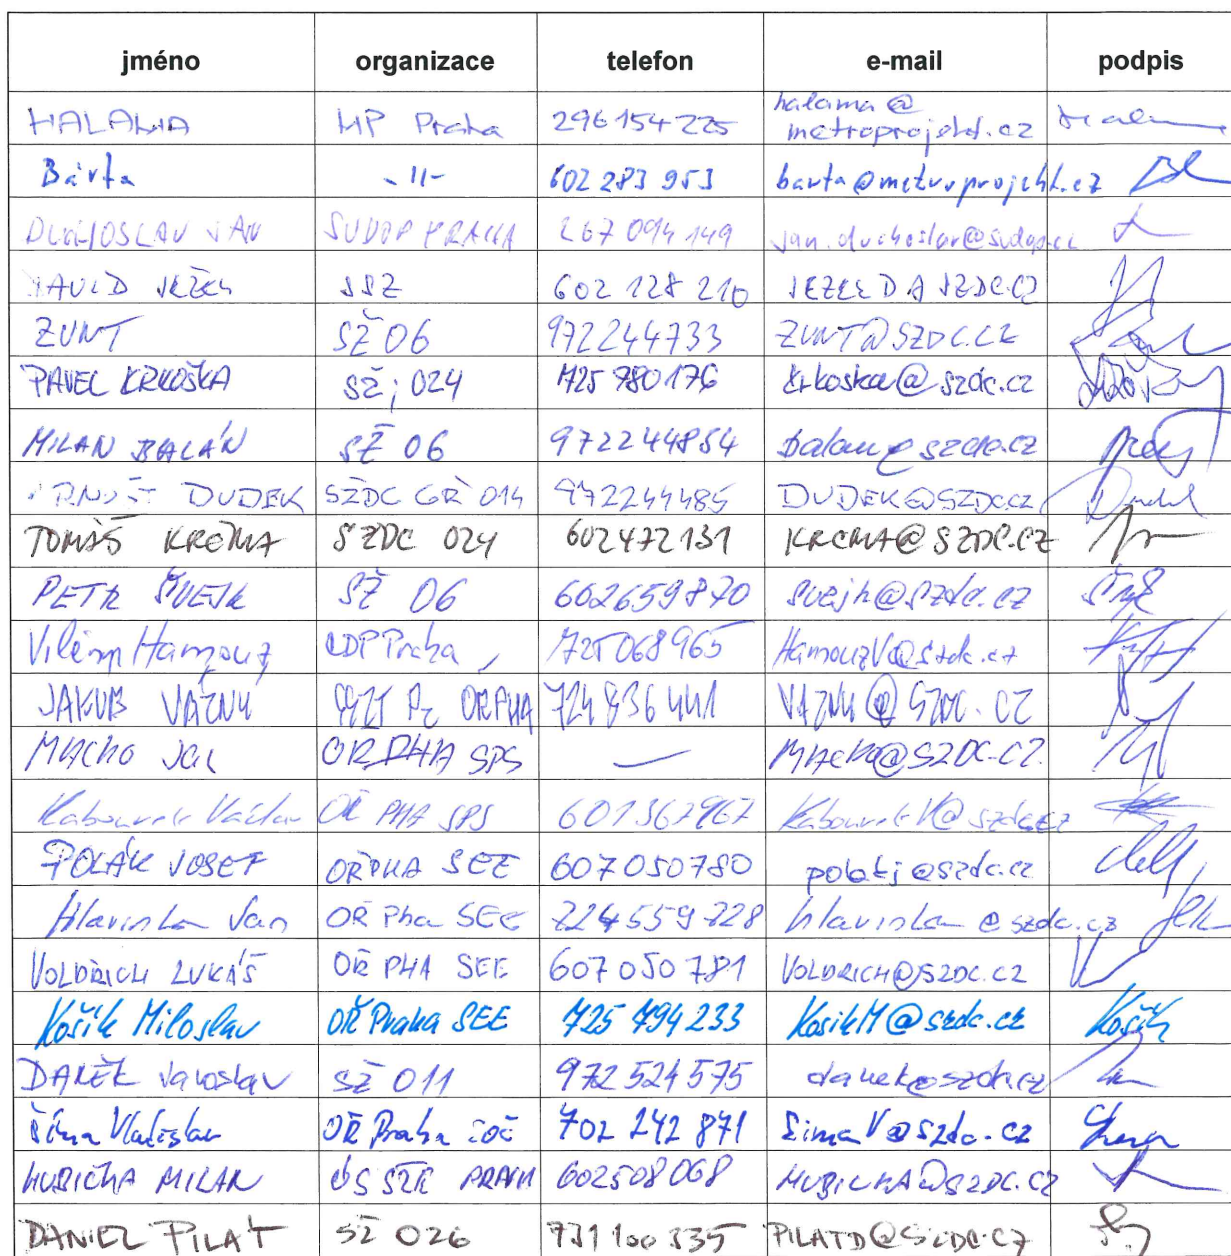 jméno organizace telefon e-mail podpis
HALAMA MP Praha 296 154 225 halama@
metroprojekt.cz
Bárta -11- 602 283 953 barta@metroprojekt.cz
DUCHOSLAV JAN SUDOP PRAHA 267 094 149 jan.duchoslav@sudop.cz
DAVID JEŽEK SSZ 602 128 210 JEZEKDASZDC.CZ
ZUNT SŽ 06 972244733 ZUNT@SZDC.CZ
PAVEL KRKOŠKA SŽ; 024 725 980 176 krkoska@szdc.cz
MILAN BALÁN SŽ 06 972244854 balan@szdc.cz
DUDEK SŽDC GŘ 014 972244485 DUDEK@SZDC.CZ
TOMÁŠ KRČMA SŽDC 024 602472131 KRCMA@SZDC.CZ
PETR ŠVEJK SŽ 06 602659870 svejk@szdc.cz
Vilém Hamouz CDP Praha 725068965 HamouzV@szdc.cz
JAKUB VÁŽNÝ OŘ PHA 724 836 441 VAZNY@SZDC.CZ
MACHO OŘ PHA SPS — MACHO@SZDC.CZ
Kabourek Václav OŘ PHA SPS 601367967 KabourekV@szdc.cz
POLÁK JOSEF OŘ PHA SEE 607 050 780 polakj@szdc.cz
Hlavinka Jan OŘ Pha SEE 224 559 228 hlavinka@szdc.cz
VOLDŘICH LUKÁŠ OŘ PHA SEE 607 050 781 VOLDRICH@SZDC.CZ
Košík Miloslav OŘ Praha SEE 725 794 233 KosikM@szdc.cz Košík
DANĚK Jaroslav SŽ 011 972 524 575 danek@szdc.cz
Šíma Vladislav OŘ Praha 702 242 871 SimaV@szdc.cz
HUBIČKA MILAN 602508068 HUBICKA@SZDC.CZ
DANIEL PILÁT SŽ 026 731 100 335 PILATD@SZDC.CZ